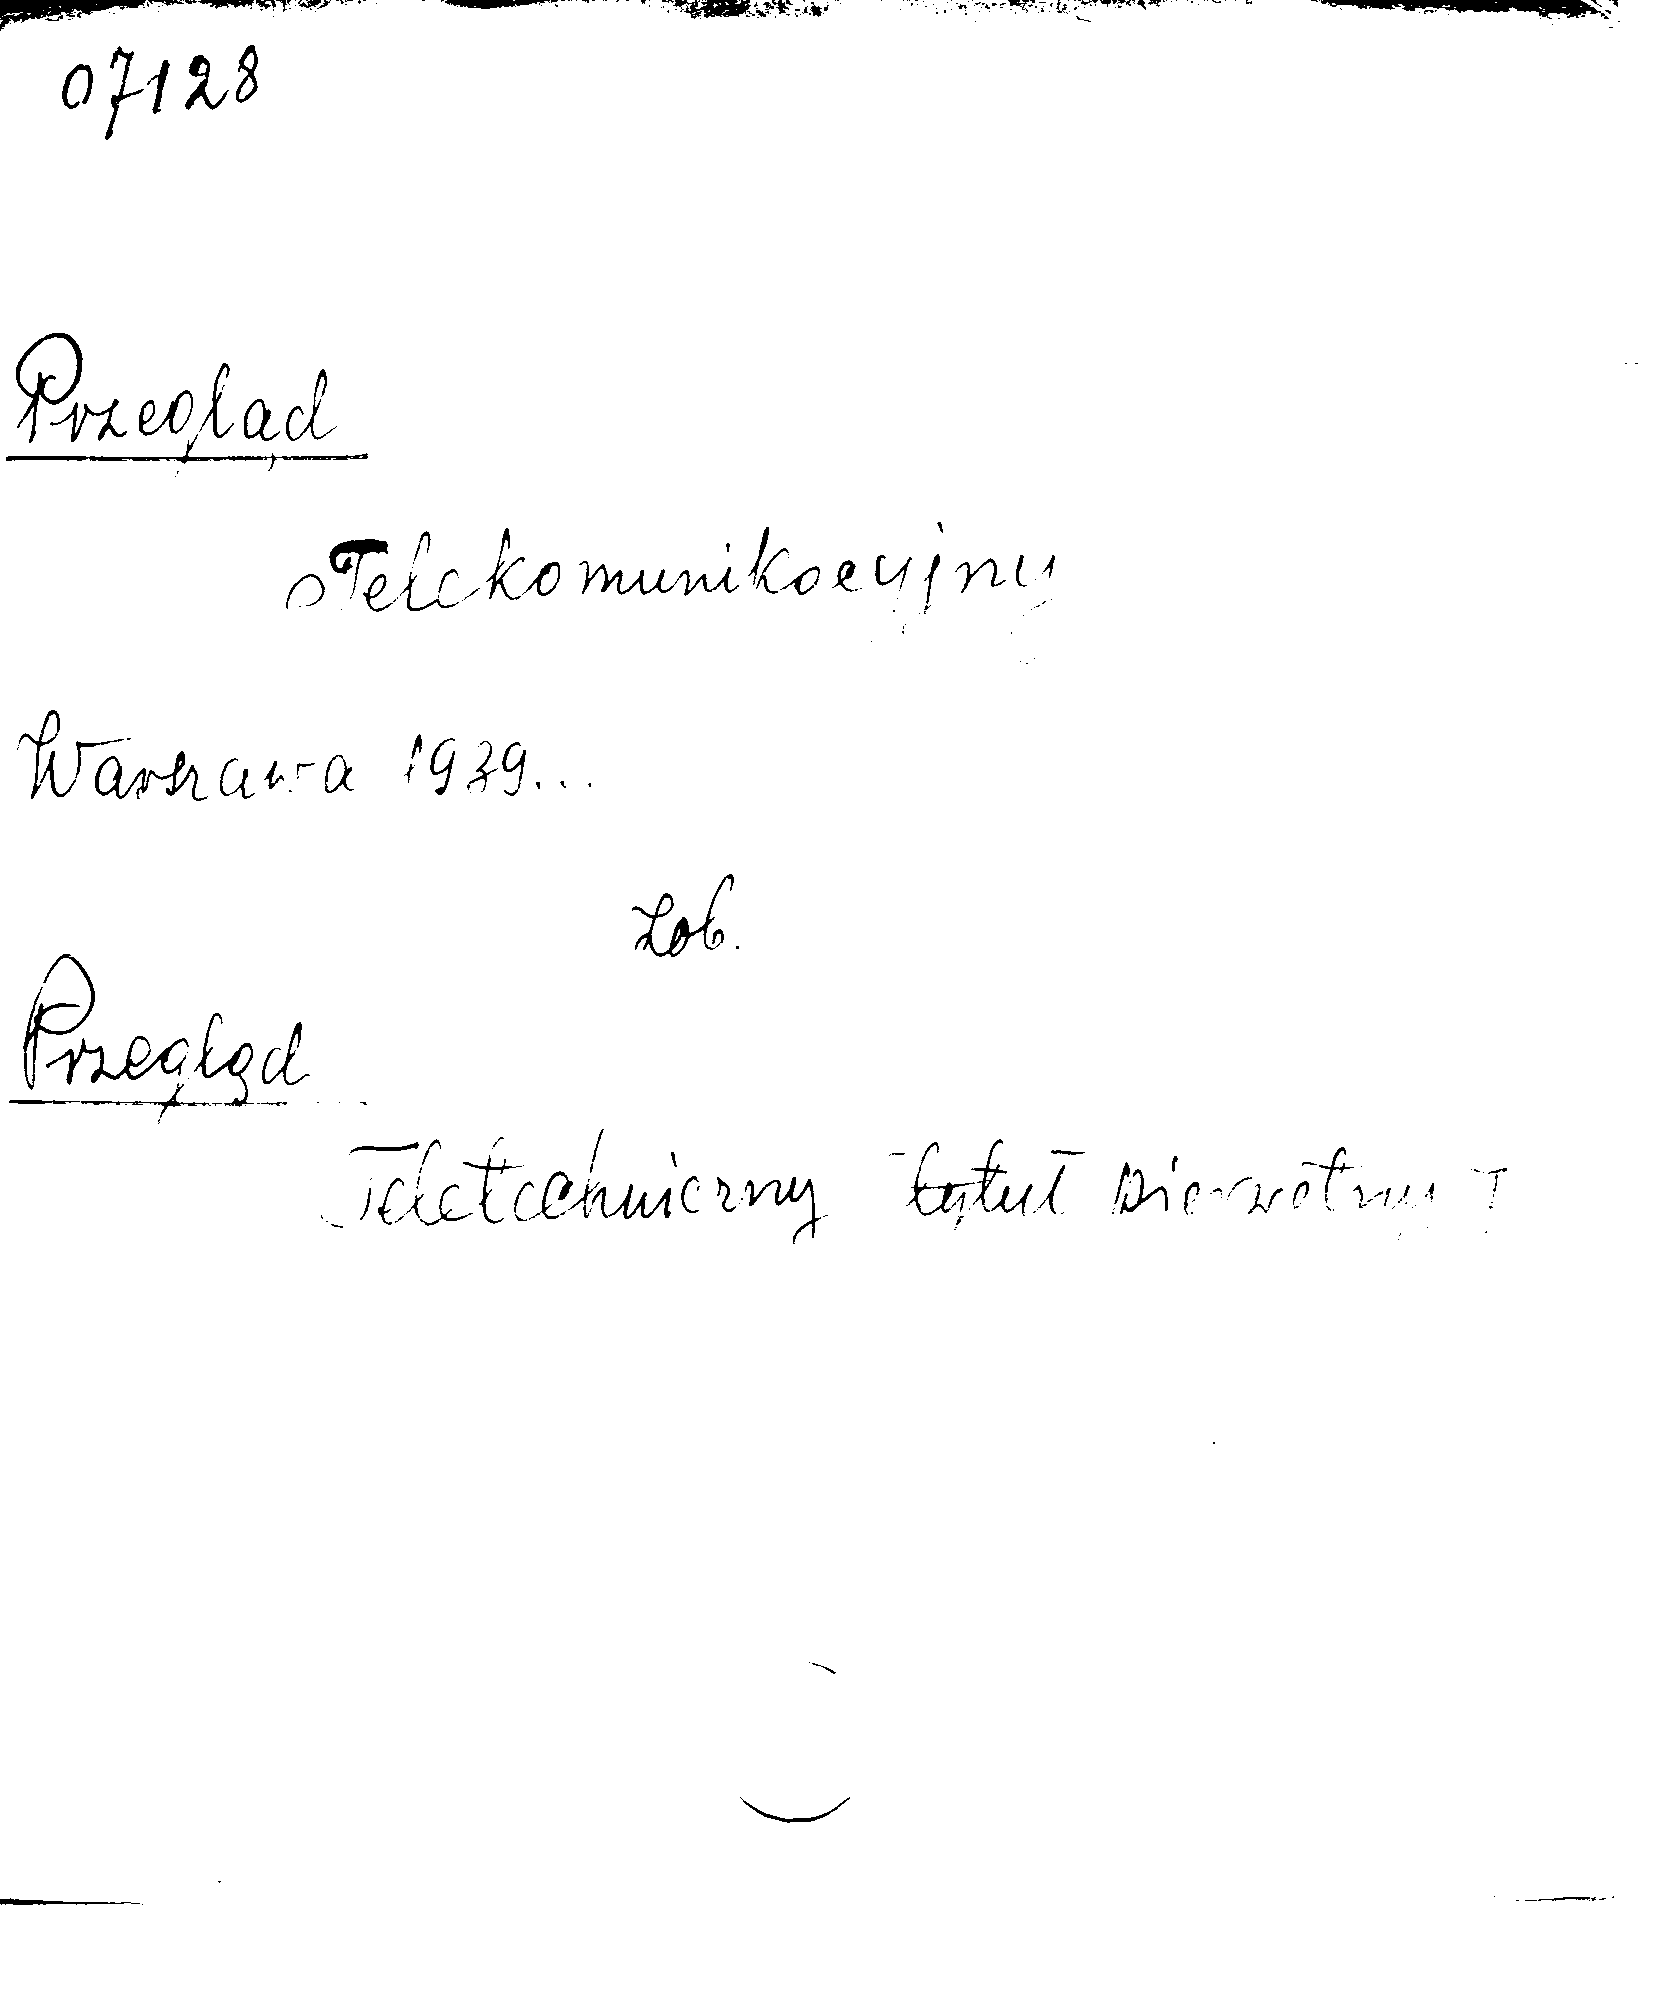 07128
Przegląd
Telekomunikacyjny
Warszawa 1939...
Zob.
Przegląd
Teletechniczny tytuł pierwotny